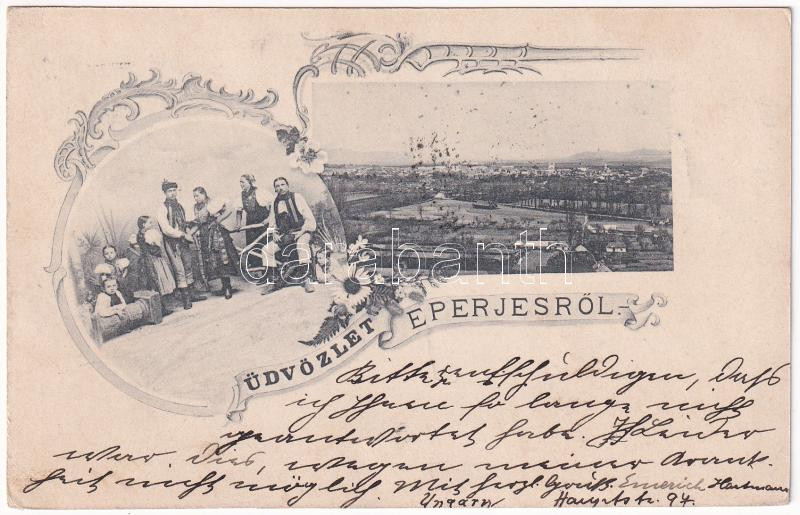 ÜDVÖZLET EPERJESRŐL.
darabanth
Bitte entschuldigen, dass
ich Ihnen so lange nicht
geantwortet habe. Leider
war dies, wegen meiner Krank-
heit nicht möglich. Mit herzl. Gruß. Emerich Hartmann
Ungarn Hauptstr. 94.